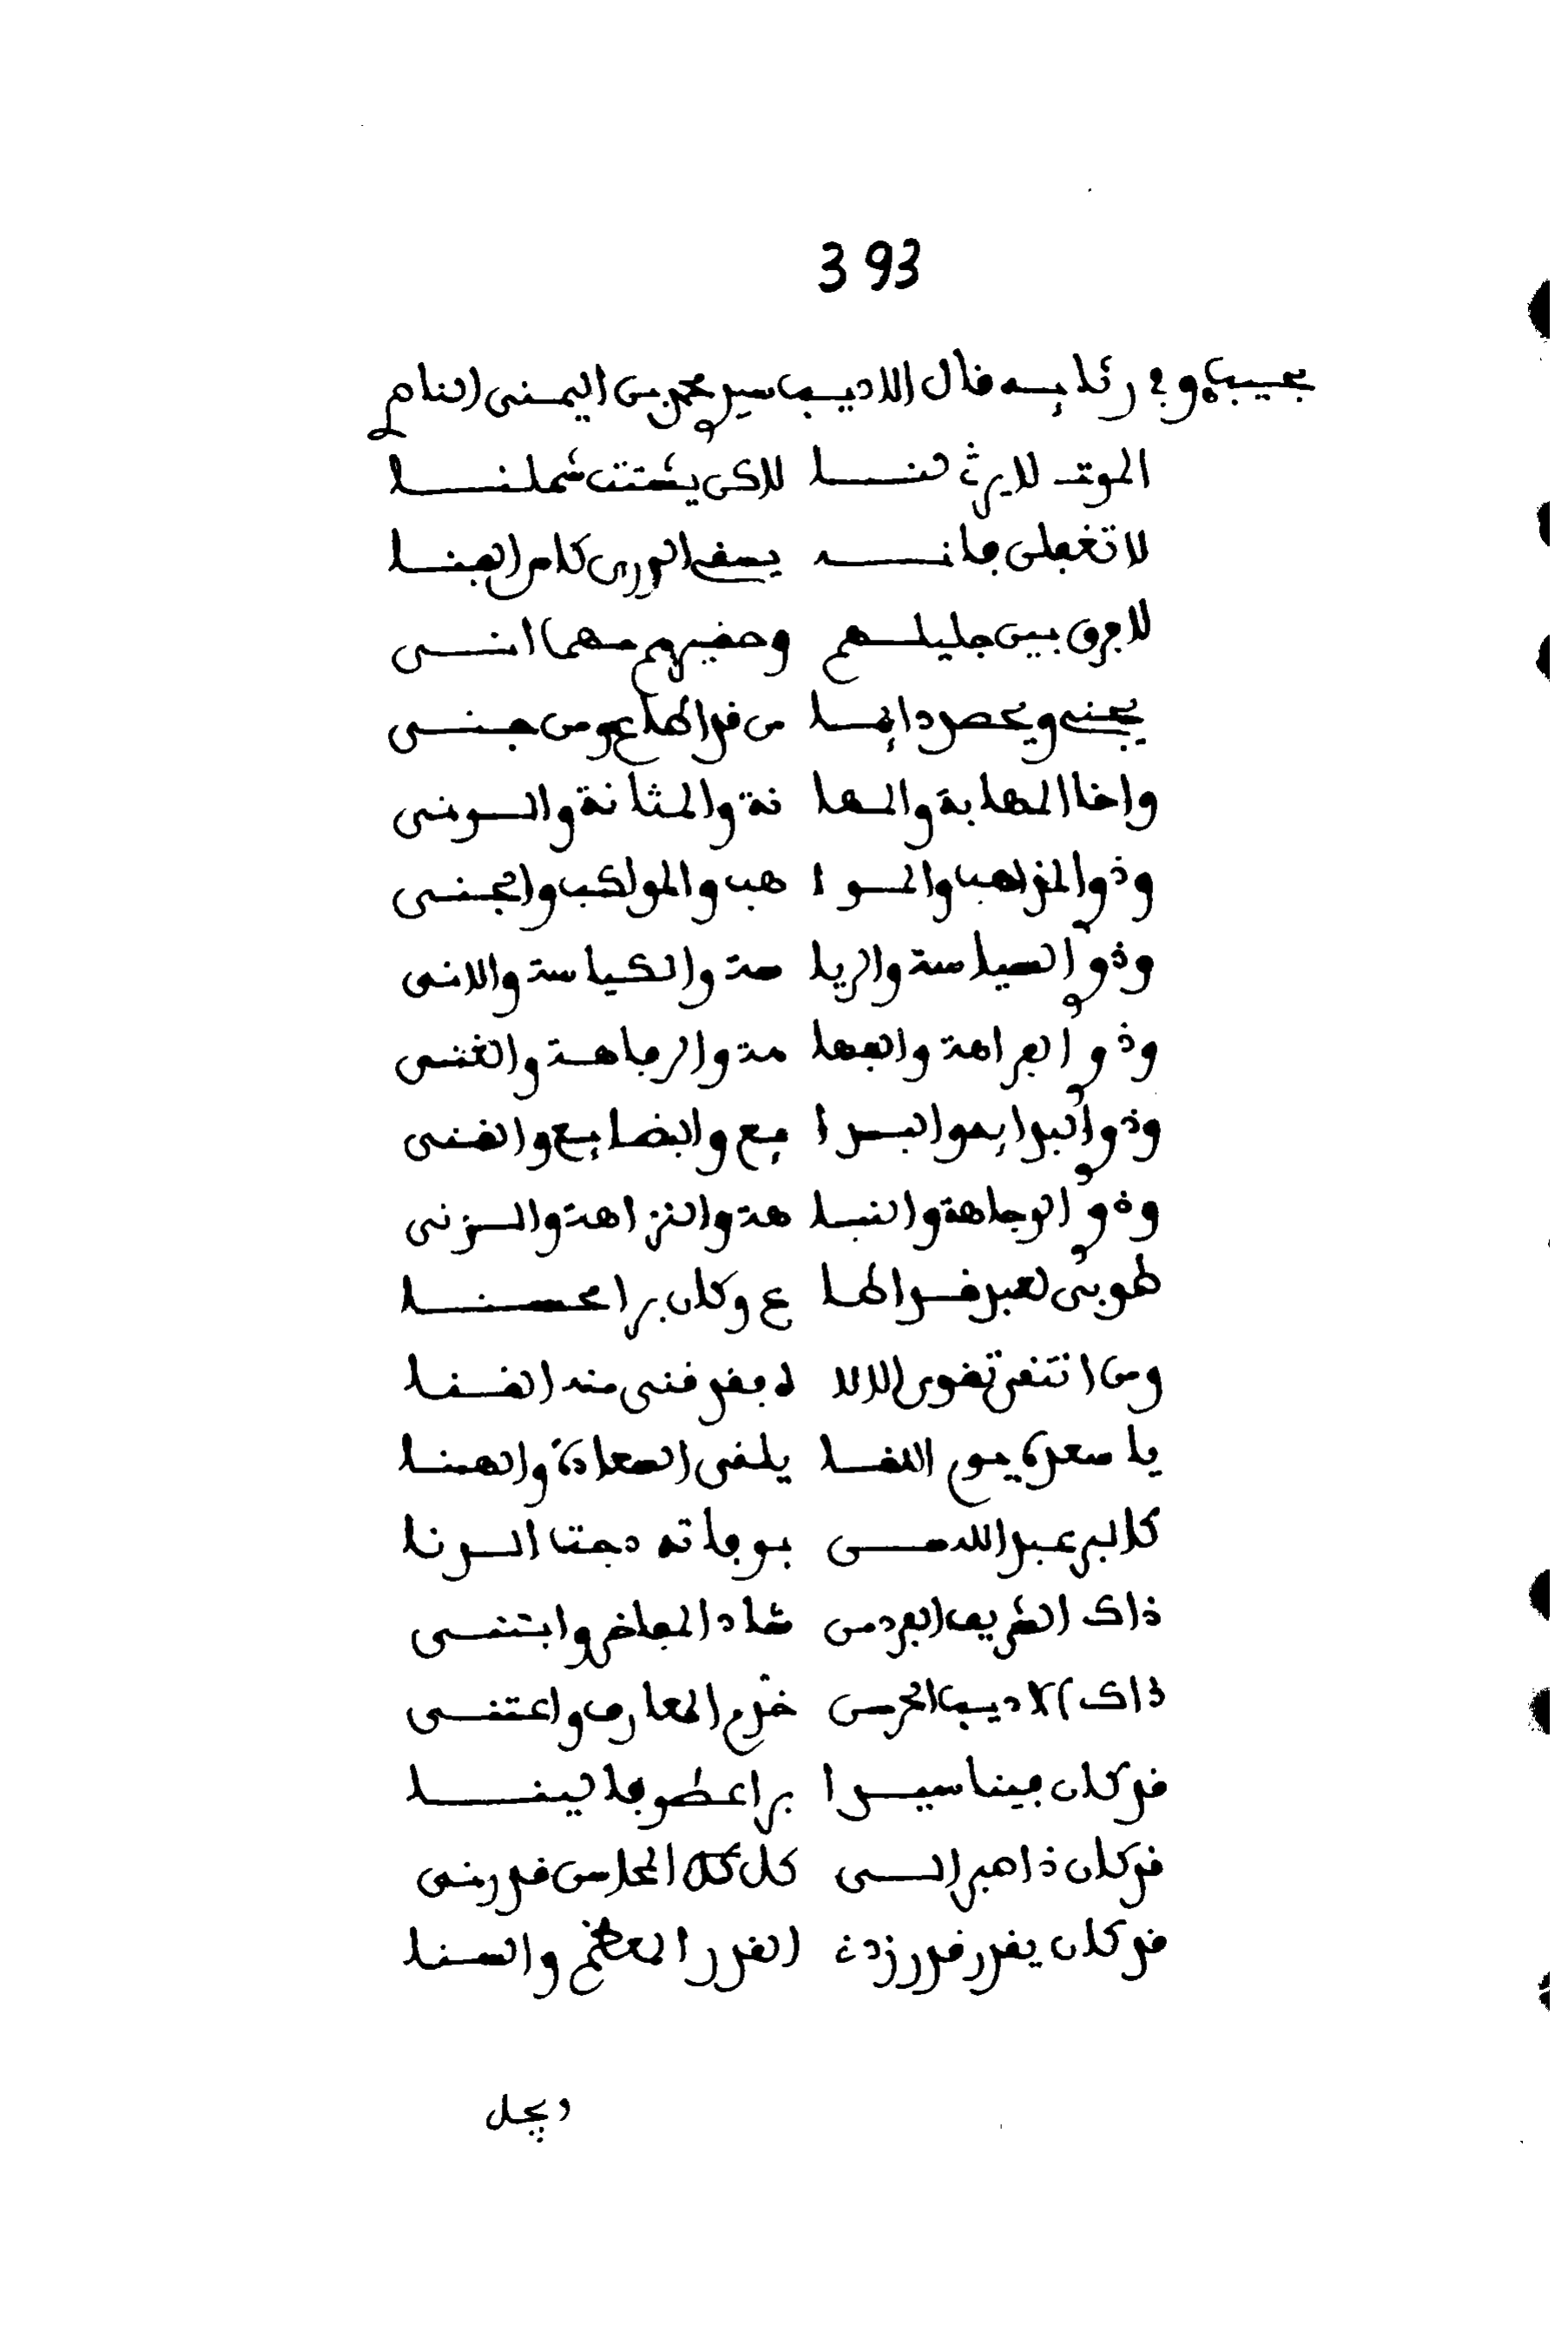 393
بعيب وفى رثائه قال الاديب سيد محمد بن اليمنى الناصر
الموت لا يرثى لنا لاكن يشتت شملنا
لا تغفلن فانه يسقى الورى كاس الفنا
لا فرق بين جليلهم وحقيرهم مهما انى
يجنى ويحصد دائما من قد اطاع ومن جنى
واخا المهابة والمها نة والمثانة والونى
وذو المذاهب والموا هب والمواكب والجنى
وذو السياسة والريا سة والكياسة والانى
وذو الفراهة والفها مة والرفاهة والغنى
وذو البدائع والبرا ئع والبضائع والقنى
وذو الوجاهة والنبا هة والنزاهة والزنى
طوبى لعبد قد اطا ع وكان برا محسنا
ومن انتقى تقوى الالا ه فقد قنى منه القنا
يا سعده يوم اللقا يلقى السعادة والهنا
كالبر عبد الله من بوفاته دجت الدنا
ذاك الشريف الفرد من شاد المفاخر وابتنى
ذاك الاديب الحر من خدم المعارف واعتنى
قد كان فينا سيدا برا عطوفا لينا
قد كان ذا هدى الى كل المحاسن قد رنى
قد كان يقدر قدر ذى القدر المعظم والسنا
ويجل